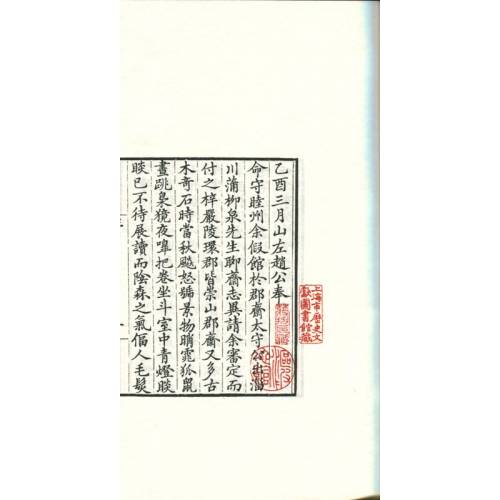 乙酉三月山左趙公奉
命守睦州余假館於郡齋太守公出淄
川蒲柳泉先生聊齋志異請余審定而
付之梓嚴陵環郡皆崇山郡齋又多古
木奇石時當秋飈怒號景物睄窱狐鼠
晝跳梟獍夜嘷把卷坐斗室中青燈睒
睒已不待展讀而陰森之氣偪人毛髮
上海市歷史文
獻圖書館藏